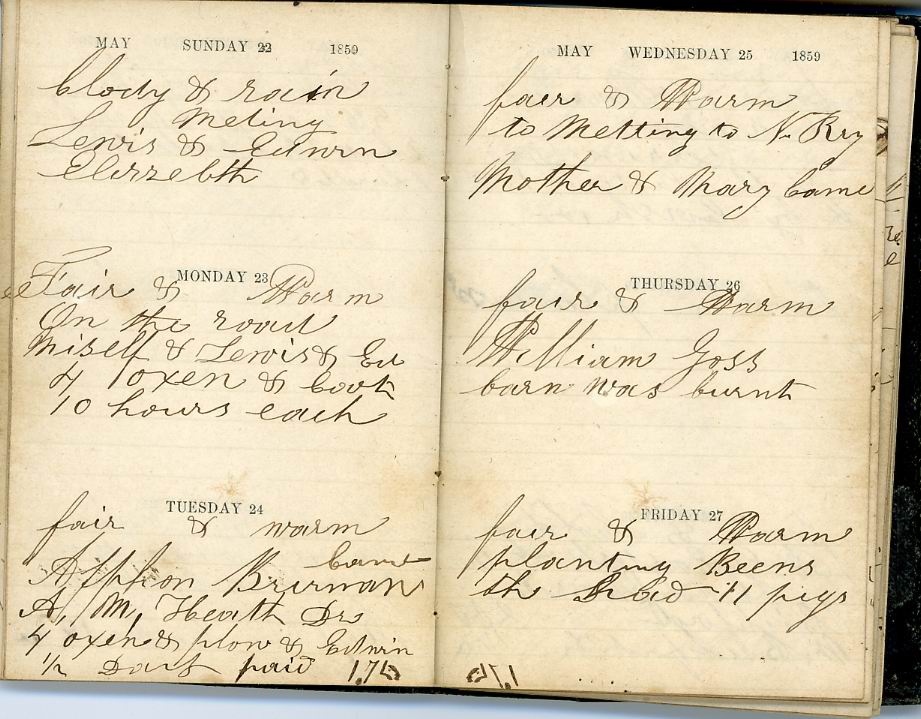 MAY SUNDAY 22 1859
Clody & rain
Meting
Lewis & Edwin
Elizzebth
MONDAY 23
Fair & Warm
On the road
Miself & Lewis & Ed
4 oxen & Cart
10 hours each
TUESDAY 24
fair & warm
came
A, M, Heath Dr
4 oxen & plow & Edwin
1/2 Day paid 1.75
MAY WEDNESDAY 25 1859
fair & Warm
to Metting to N. Rey
Mother & Mary Came
THURSDAY 26
fair & Warm
William Goss
barn was burnt
FRIDAY 27
fair & Warm
planting Beens
th Shad 11 pigs